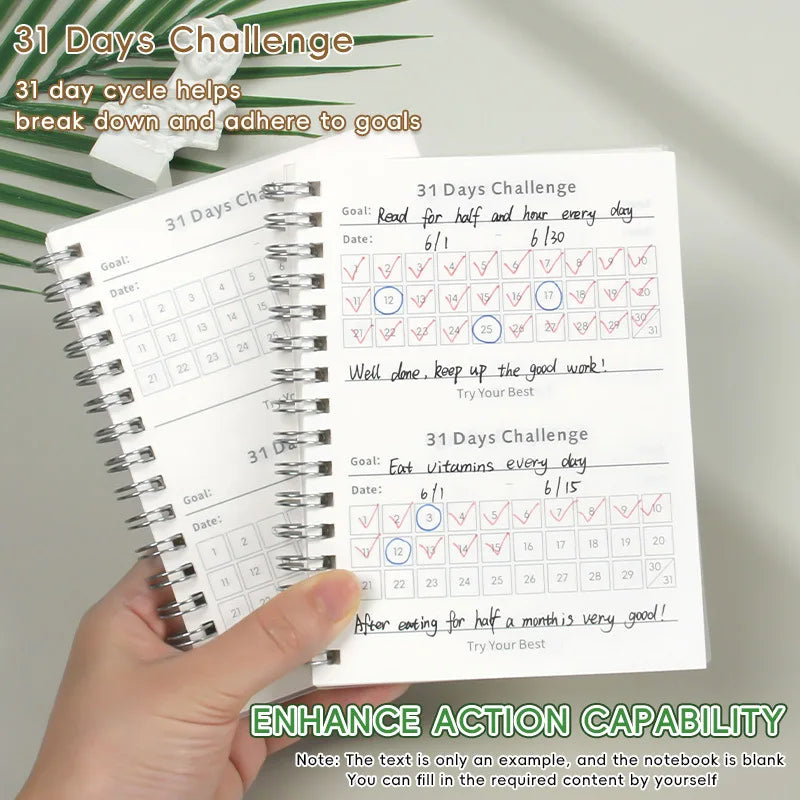 31 Days Challenge
31 day cycle helps
break down and adhere to goals
31 Days Cha
Goal:
Date:
1 2 3 4 5 6
11 12 13 14 15
21 22 23 24 25
Try Yo
31 Da
Goal:
Date:
1 2
11 12
21 22
31 Days Challenge
Goal: Read for half and hour every day
Date: 6/1 – 6/30
1 2 3 4 5 6 7 8 9 10
11 12 13 14 15 16 17 18 19 20
21 22 23 24 25 26 27 28 29 30/31
Well done, keep up the good work!
Try Your Best
31 Days Challenge
Goal: Eat vitamins every day
Date: 6/1 – 6/15
1 2 3 4 5 6 7 8 9 10
11 12 13 14 15 16 17 18 19 20
21 22 23 24 25 26 27 28 29 30/31
After eating for half a month is very good!
Try Your Best
ENHANCE ACTION CAPABILITY
Note: The text is only an example, and the notebook is blank
You can fill in the required content by yourself